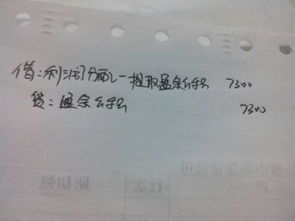 借:利润分配—提取盈余公积 7300
贷:盈余公积 7300